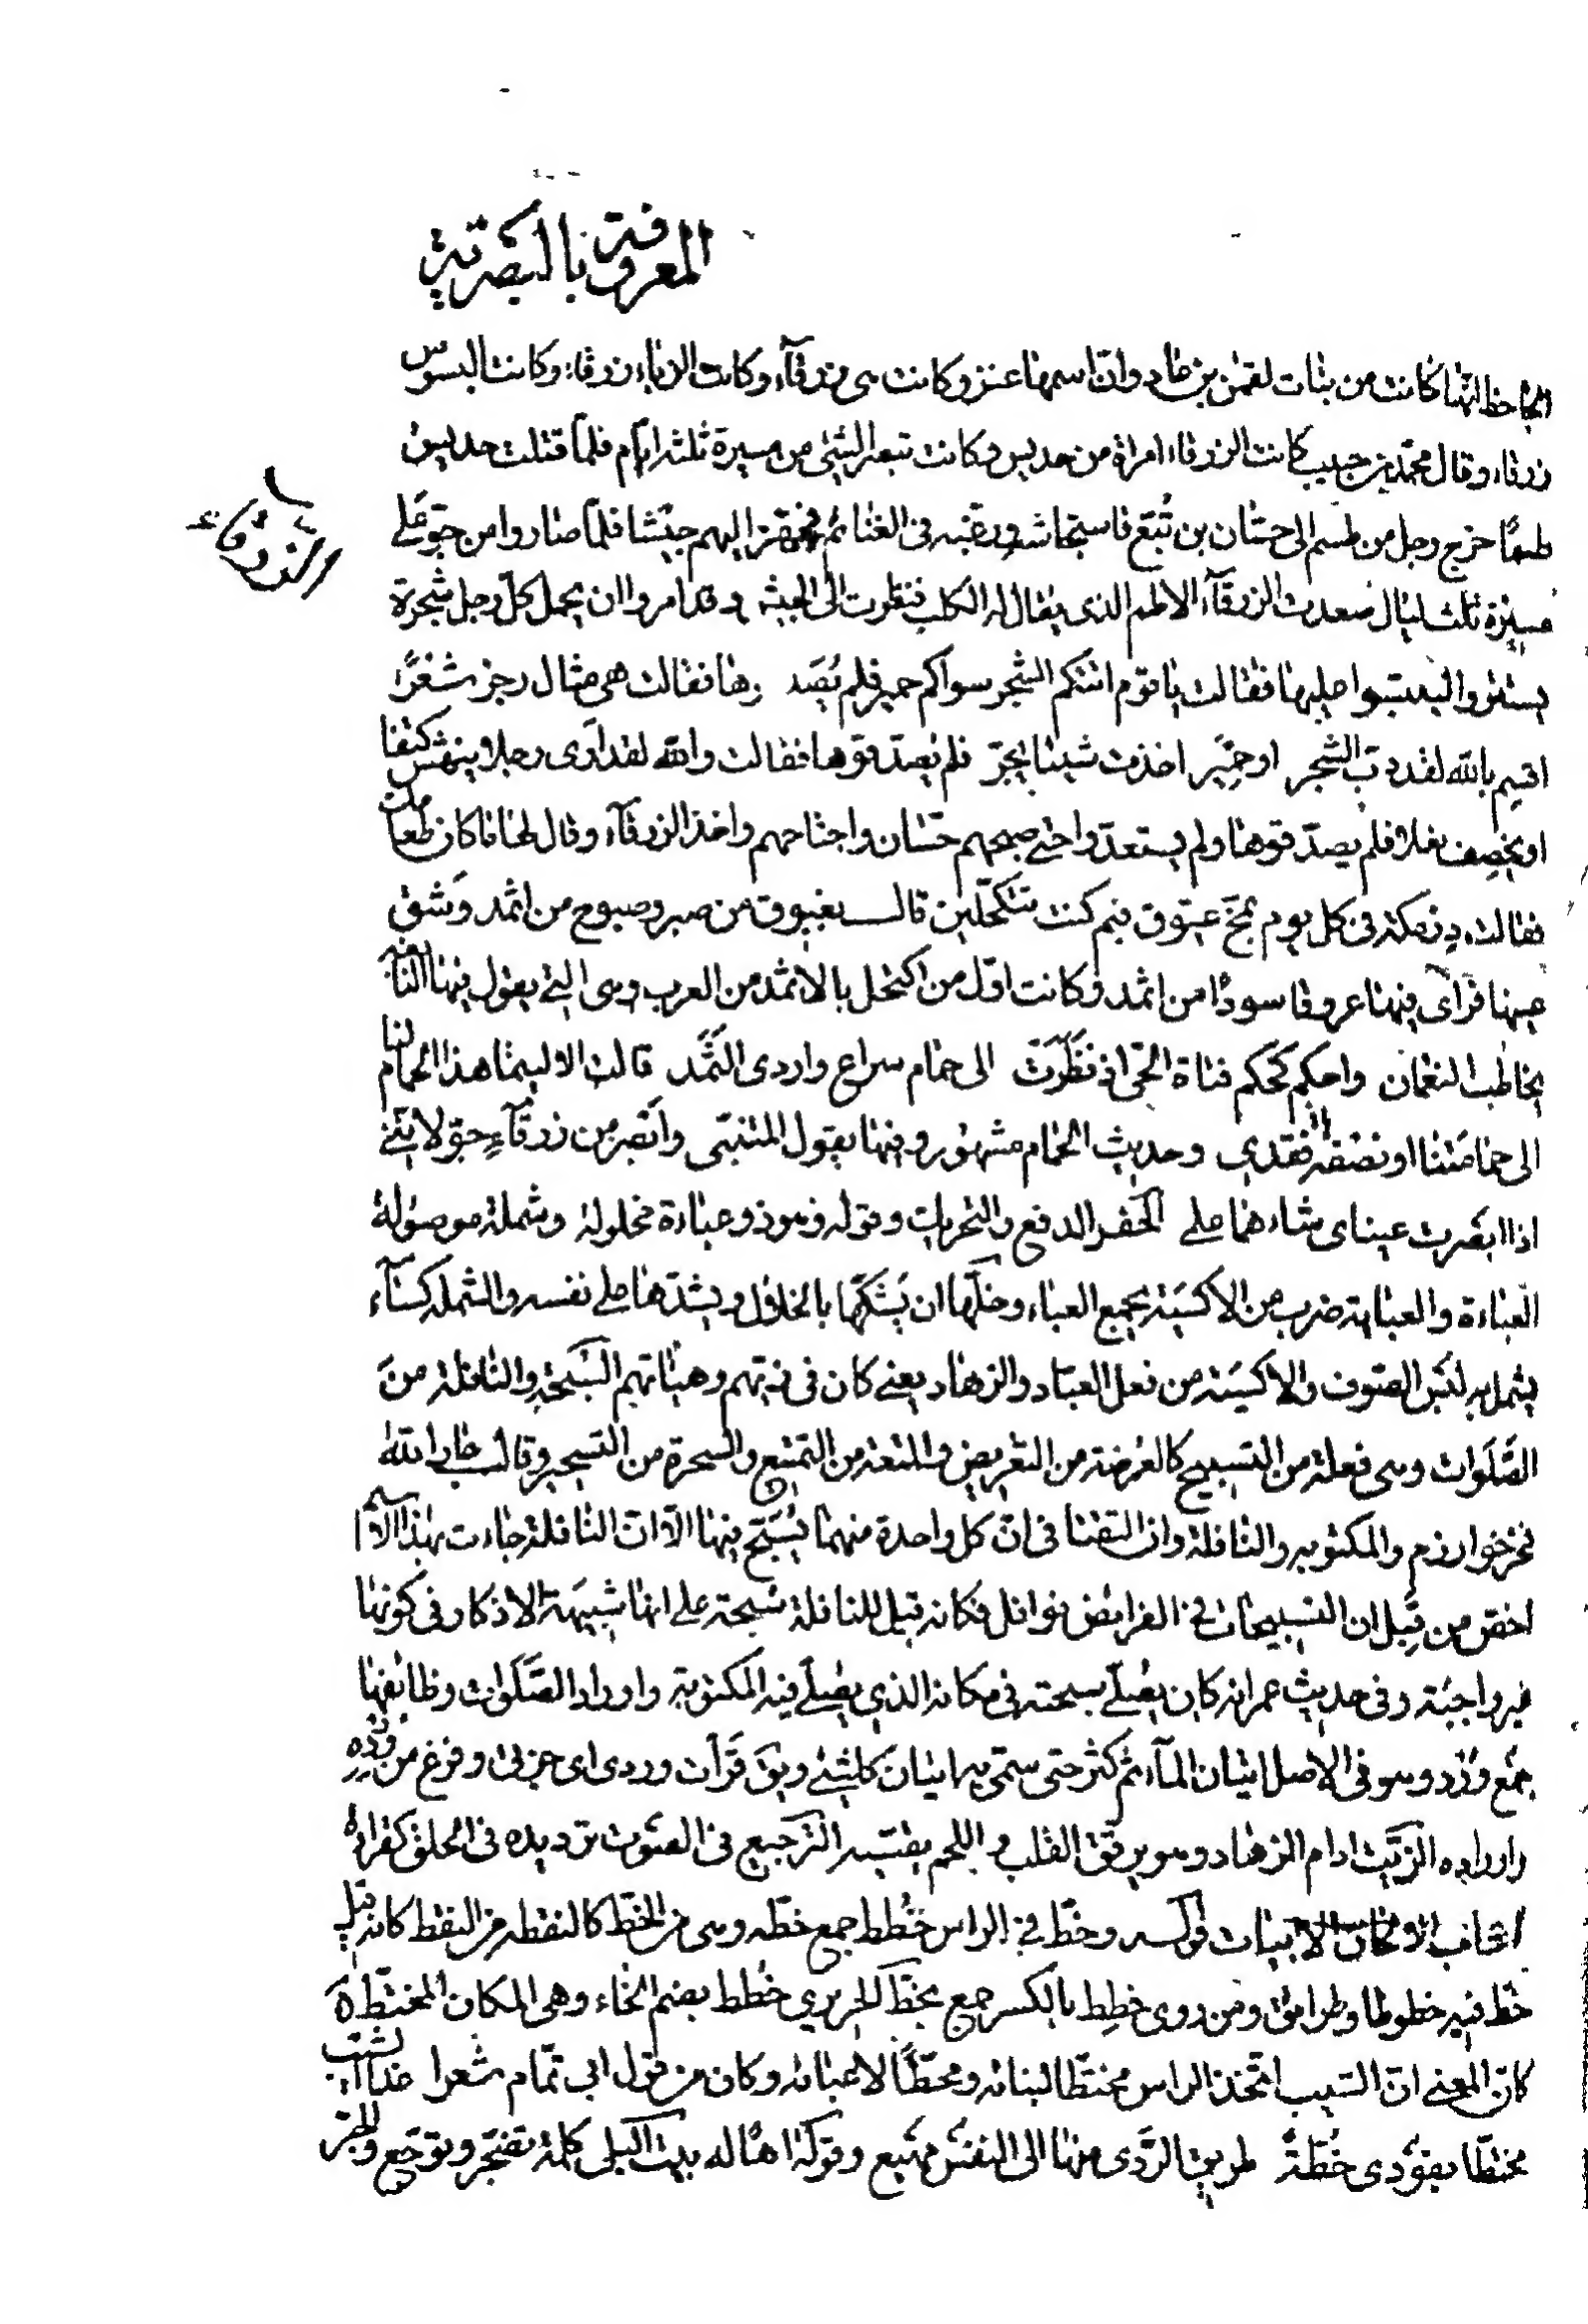 المعروفة بالبصرية
الجاحظ انها كانت من بنات لقمن بن عاد وانّ اسمها عنز وكانت هى زرقآء وكانت الزباء زرقاء وكانت البسوس
زرقاء وقال محمّد بن حبيب كانت الزرقاء امراة من جديس وكانت تبصر الشئ من مسيرة ثلثة ايّام فلمّا قتلت جديس
الزّرقاء
طسمًا خرج رجل من طسم الى حسّان بن تبّع فاستجاشه ورغبه فى الغنائم فجهّز اليهم جيشا فلمّا صاروا من جوّ على
مسيرة ثلث ليال صعدت الزرقآء الاطم الذى يقال له الكلب فنظرت الى الجيش وقد امروا ان يحمل كلّ رجل شجرة
يستتر واليلبّسوا عليها فقالت يا قوم اتتكم الشجر سواكم حمير فلم يصد وها فقالت هى مثال رجز شعرًا
اقسم بالله لقد دبّ الشجر او حِمْيَر اخذت شيئا يجرّ فلم يصدّقوها فقالت والله لقد ارى رجلا ينهش كتفا
او يخصِف نعلا فلم يصدّقوها ولم يستعدّوا حتى صبحهم حسّان واجتاحهم واخذ الزرقآء وقال لها ما كان طعامك
فقالت درمكة فى كل يوم بمخّ عتوق فبم كنت تتكحّلين قالت بغبوق من صبر وصبوح من اثمد وشقّ
عينها فراى فيها عروقا سودًا من اثمد وكانت اوّل من اكتحل بالاثمد من العرب وهى التى يقول فيها النابغة
يخاطب النعمان واحكم كحكم فتاة الحىّ اذ نظَرَتْ الى حمام سراع واردى الثَّمَد قالت الا ليتما هذا الحمام لنا
الى حمامَتنا او نصْفه فقدى وحديث الحمام مشهور وفيها يقول المتنبّى وابصر من زرقآءِ جوّ لانّنى
اذا ابصرت عيناى شاءهما علمى الحفر الدفع والتحريك وقوله فهو ذو عباءة مخلولة وشملة موصولة
العباءة والعباية ضرب من الاكسية يجمع العباء وخلّها ان يشكّها بالخلال ويشدّها على نفسه والشملة كسآء
يشمل به لبس الصّوف والاكسية من فعل العبّاد والزهاد يعنى كان فى زيّهم وهيئاتهم السّبحة والنافلة من
الصَّلَوات وهى فعلة من التسبيح كالعرضة من التعريض والمتعة من التمتيع والسحرة من التسحير وقال جار الله
فخر خوارزم والمكتوبة والنافلة وان التقتا فى انّ كل واحدة منهما يُسبَّح فيها الّا انّ النافلة جاءت بهذا الاسم
اخصّ من قِبَل ان التسبيحات فى الفرايض نوافل فكانه قيل للنافلة سبحة على انها شبيهة الاذكار فى كونها
غير واجبة وفى حديث عمر انه كان يصلّى سبحته فى مكانه الذى يصلّى فيه المكتوبة واوراد الصّلوات وظائفها
جمع ورد وهو فى الاصل اتيان المآء ثم كثر حتى سمّى به اتيان كل شئ ويق قرات وردى اى حزبى وفرغ من ورده
واوراده الزّيت ادام الزهاد وهو يرقّق القلب و اللحم يقسّيه الترجيع فى الصّوت ترديده فى الحلق كقراءة
اصحاب الالحان الابيات قوله وخطّ فى الراس خُطط جمع خطّه وهى من الخطّ كالنقطه من النقط كانه قيل
خطّ فيه خطوطا وطرايق ومن روى خِطط بالكسر جمع بخطّ الحريرى خُطط بضم الخاء وهى المكان المختطّ ة
كانّ المعنى انّ الشيب اتّخذ الراس مختطّا لبنائه ومحطّا لاعبائه وكان من قول ابى تمّام شعرا غدا الشيب
مختطّا بفودى خُطّةً طريق الرّدى منها الى النفس مهيع وقوله اها له بيت البلى كلمة تضجّر وتوجّع والجرّ